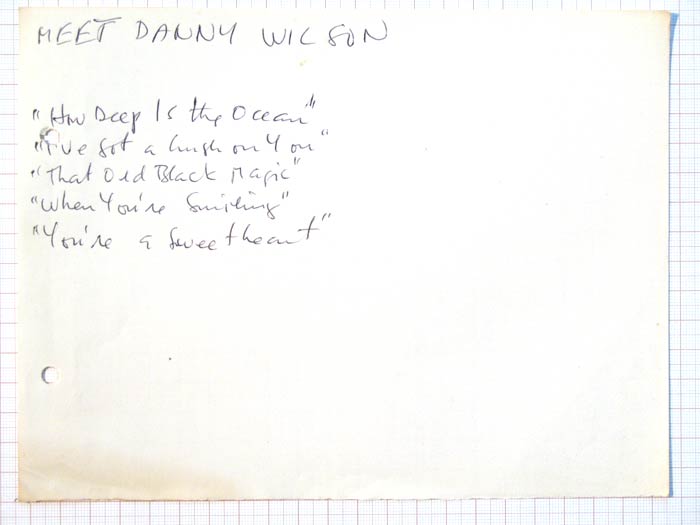 MEET DANNY WILSON
"How Deep Is the Ocean"
"I've Got a Crush on You"
"That Old Black Magic"
"When You're Smiling"
"You're a Sweetheart"